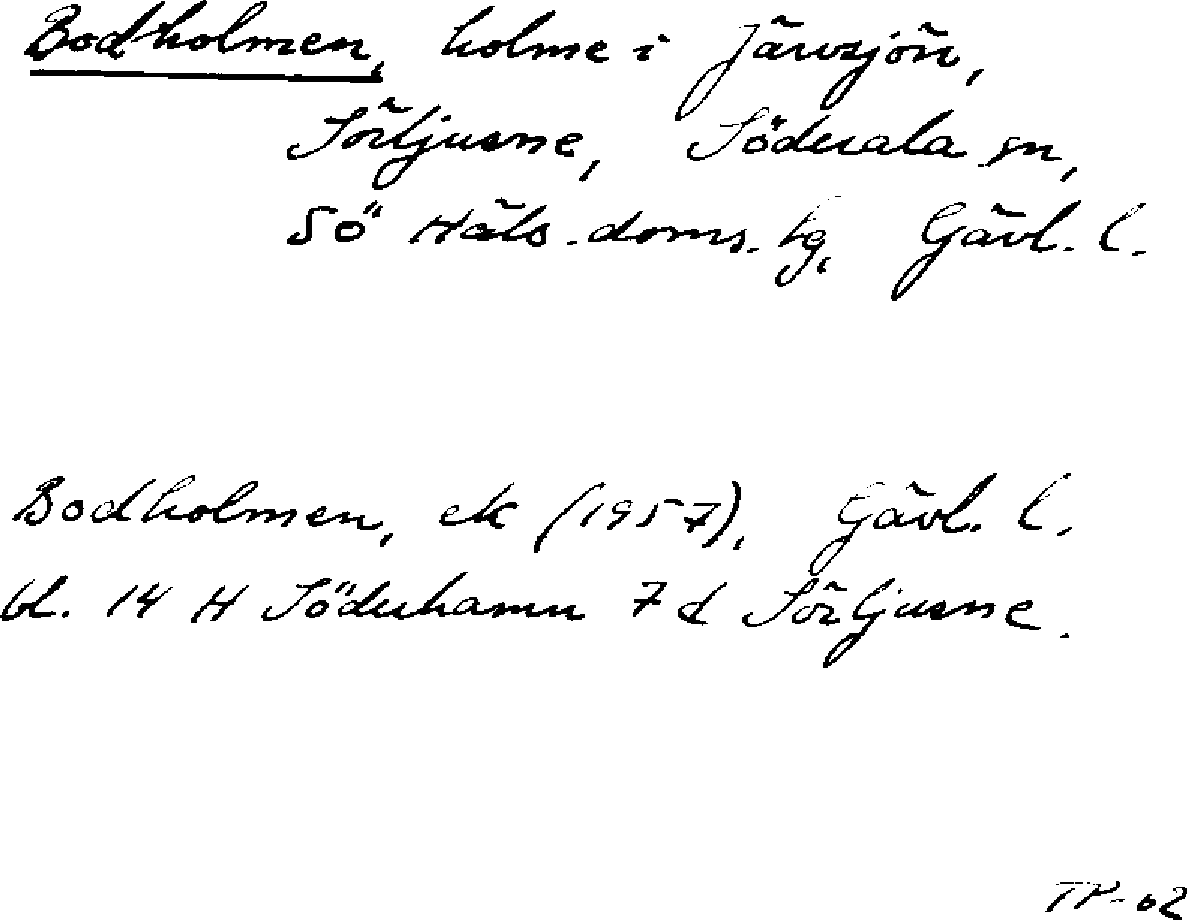 Bodholmen, holme i Järvsjön,
Sörljusne, Söderala sn,
Sö Häls. doms. tg, Gävl. l.
Bodholmen, ek (1957), Gävl. l.
bl. 14 H Söderhamn 7d Sörljusne.
TP-62